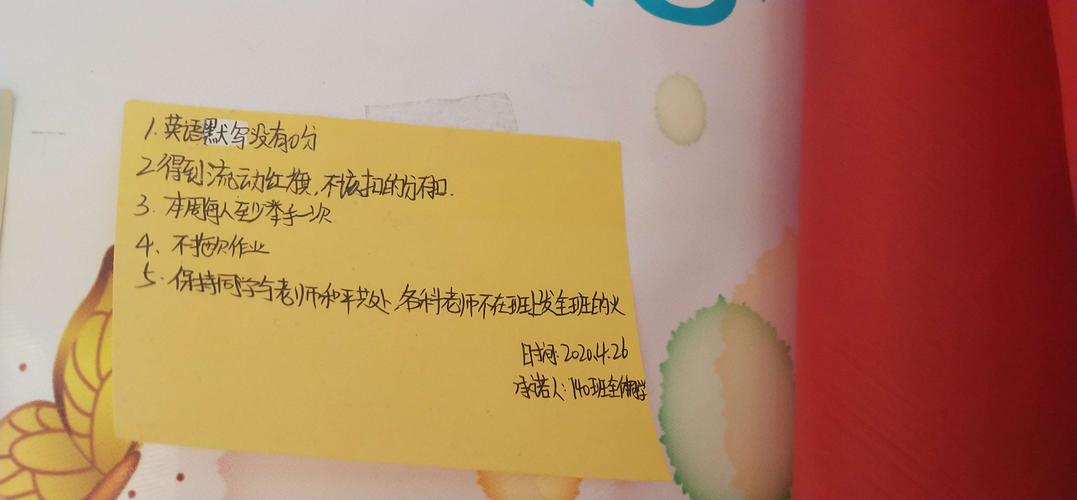 1. 英语默写没有0分
2. 得到流动红旗,不该扣的分不扣.
3. 本周每人至少举手一次
4、不拖欠作业
5. 保持同学与老师和平共处,各科老师不在班上发全班的火
时间:2020.4.26
承诺人:140班全体同学